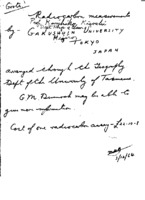 Radiocarbon measurements
by - GAKUSHUIN UNIVERSITY
TOKYO
JAPAN
arranged through the Geography
Dept of the University of Tasmania.
G.M. Dimmock may be able to
give more information.
Cost of one radiocarbon assay -